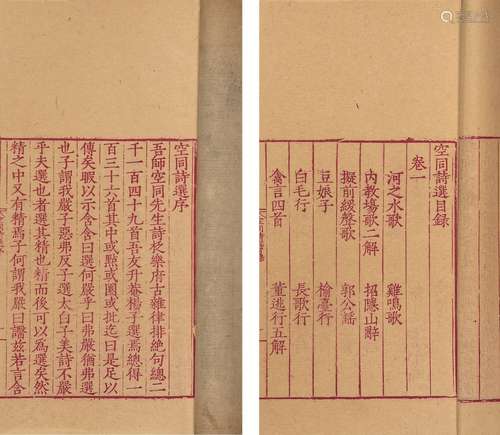 空同詩選目録
卷一
河之水歌 雞鳴歌
内教場歌二解 招隱山辭
擬前緩聲歌 郭公謡
豆娘子 榆臺行
白毛行 長歌行
禽言四首 董逃行五解
空同詩選序
吾師空同先生詩按樂府古雜律排絶句總二
千一百四十九首吾友升菴楊子選焉總得一
百三十六首其中或點或圈或批迄曰是足以
傳矣暇以示含含曰選何嚴乎曰弗嚴猶弗選
也子謂我嚴子惡弗反子選太白子美詩不嚴
乎夫選也者選其精也精而後可以為選矣然
精之中又有精焉子何謂我嚴曰謂兹若言含